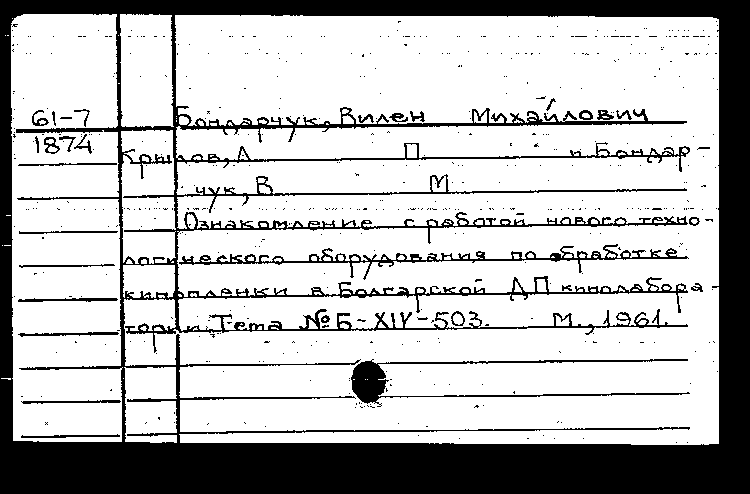 61-7 Бондарчук, Вилен Михайлович
1874
Крылов, А П и Бондар-
чук, В М
Ознакомление с работой нового техно-
логического оборудования по обработке
кинопленки в Болгарской ДП кинолабора-
тории. Тема № Б-XIV-503. М., 1961.